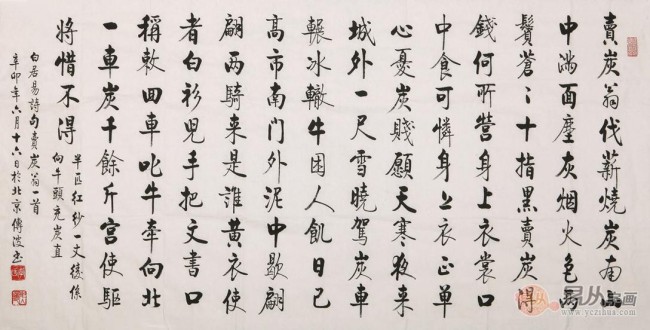 賣炭翁伐薪燒炭南山
中滿面塵灰烟火色兩
鬢蒼〻十指黑賣炭得
錢何所營身上衣裳口
中食可憐身上衣正單
心憂炭賤願天寒夜來
城外一尺雪曉駕炭車
輾冰轍牛困人飢日已
高市南門外泥中歇翩
翩兩騎來是誰黃衣使
者白衫兒手把文書口
稱敕回車叱牛牽向北
一車炭千餘斤宮使驅
將惜不得
半匹红紗一丈綾係
向牛頭充炭直
白居易詩句賣炭翁一首
辛卯年六月十六日於北京傅波书
易从字画
www.yczihua.com